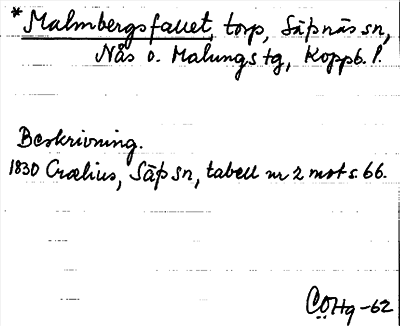 *Malmbergsfallet, torp, Säfsnäs sn,
Nås o. Malungs tg, Koppb. l.
Beskrivning.
1830 Crælius, Säfs sn, tabell nr 2 mot s. 66.
CÖHg -62